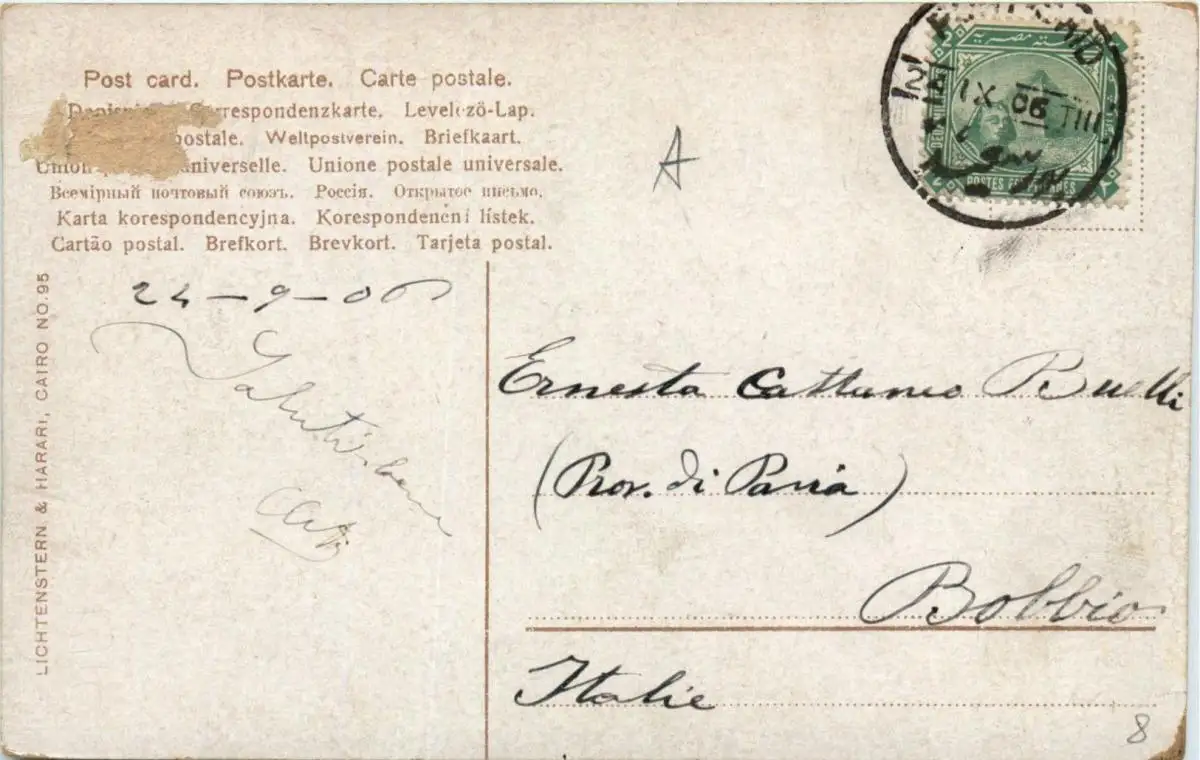 Post card. Postkarte. Carte postale.
Correspondenzkarte. Levelező-Lap.
postale. Weltpostverein. Briefkaart.
Union universelle. Unione postale universale.
Всемірный почтовый союзъ. Россія. Открытое письмо.
Karta korespondencyjna. Korespondenční lístek.
Cartão postal. Brefkort. Brevkort. Tarjeta postal.
LICHTENSTERN & HARARI, CAIRO NO. 95
24-9-06
Saluti
A
IX 06
POSTES
Ernesta Cattaneo Buelli
(Prov. di Pavia)
Bobbio
Italie
8